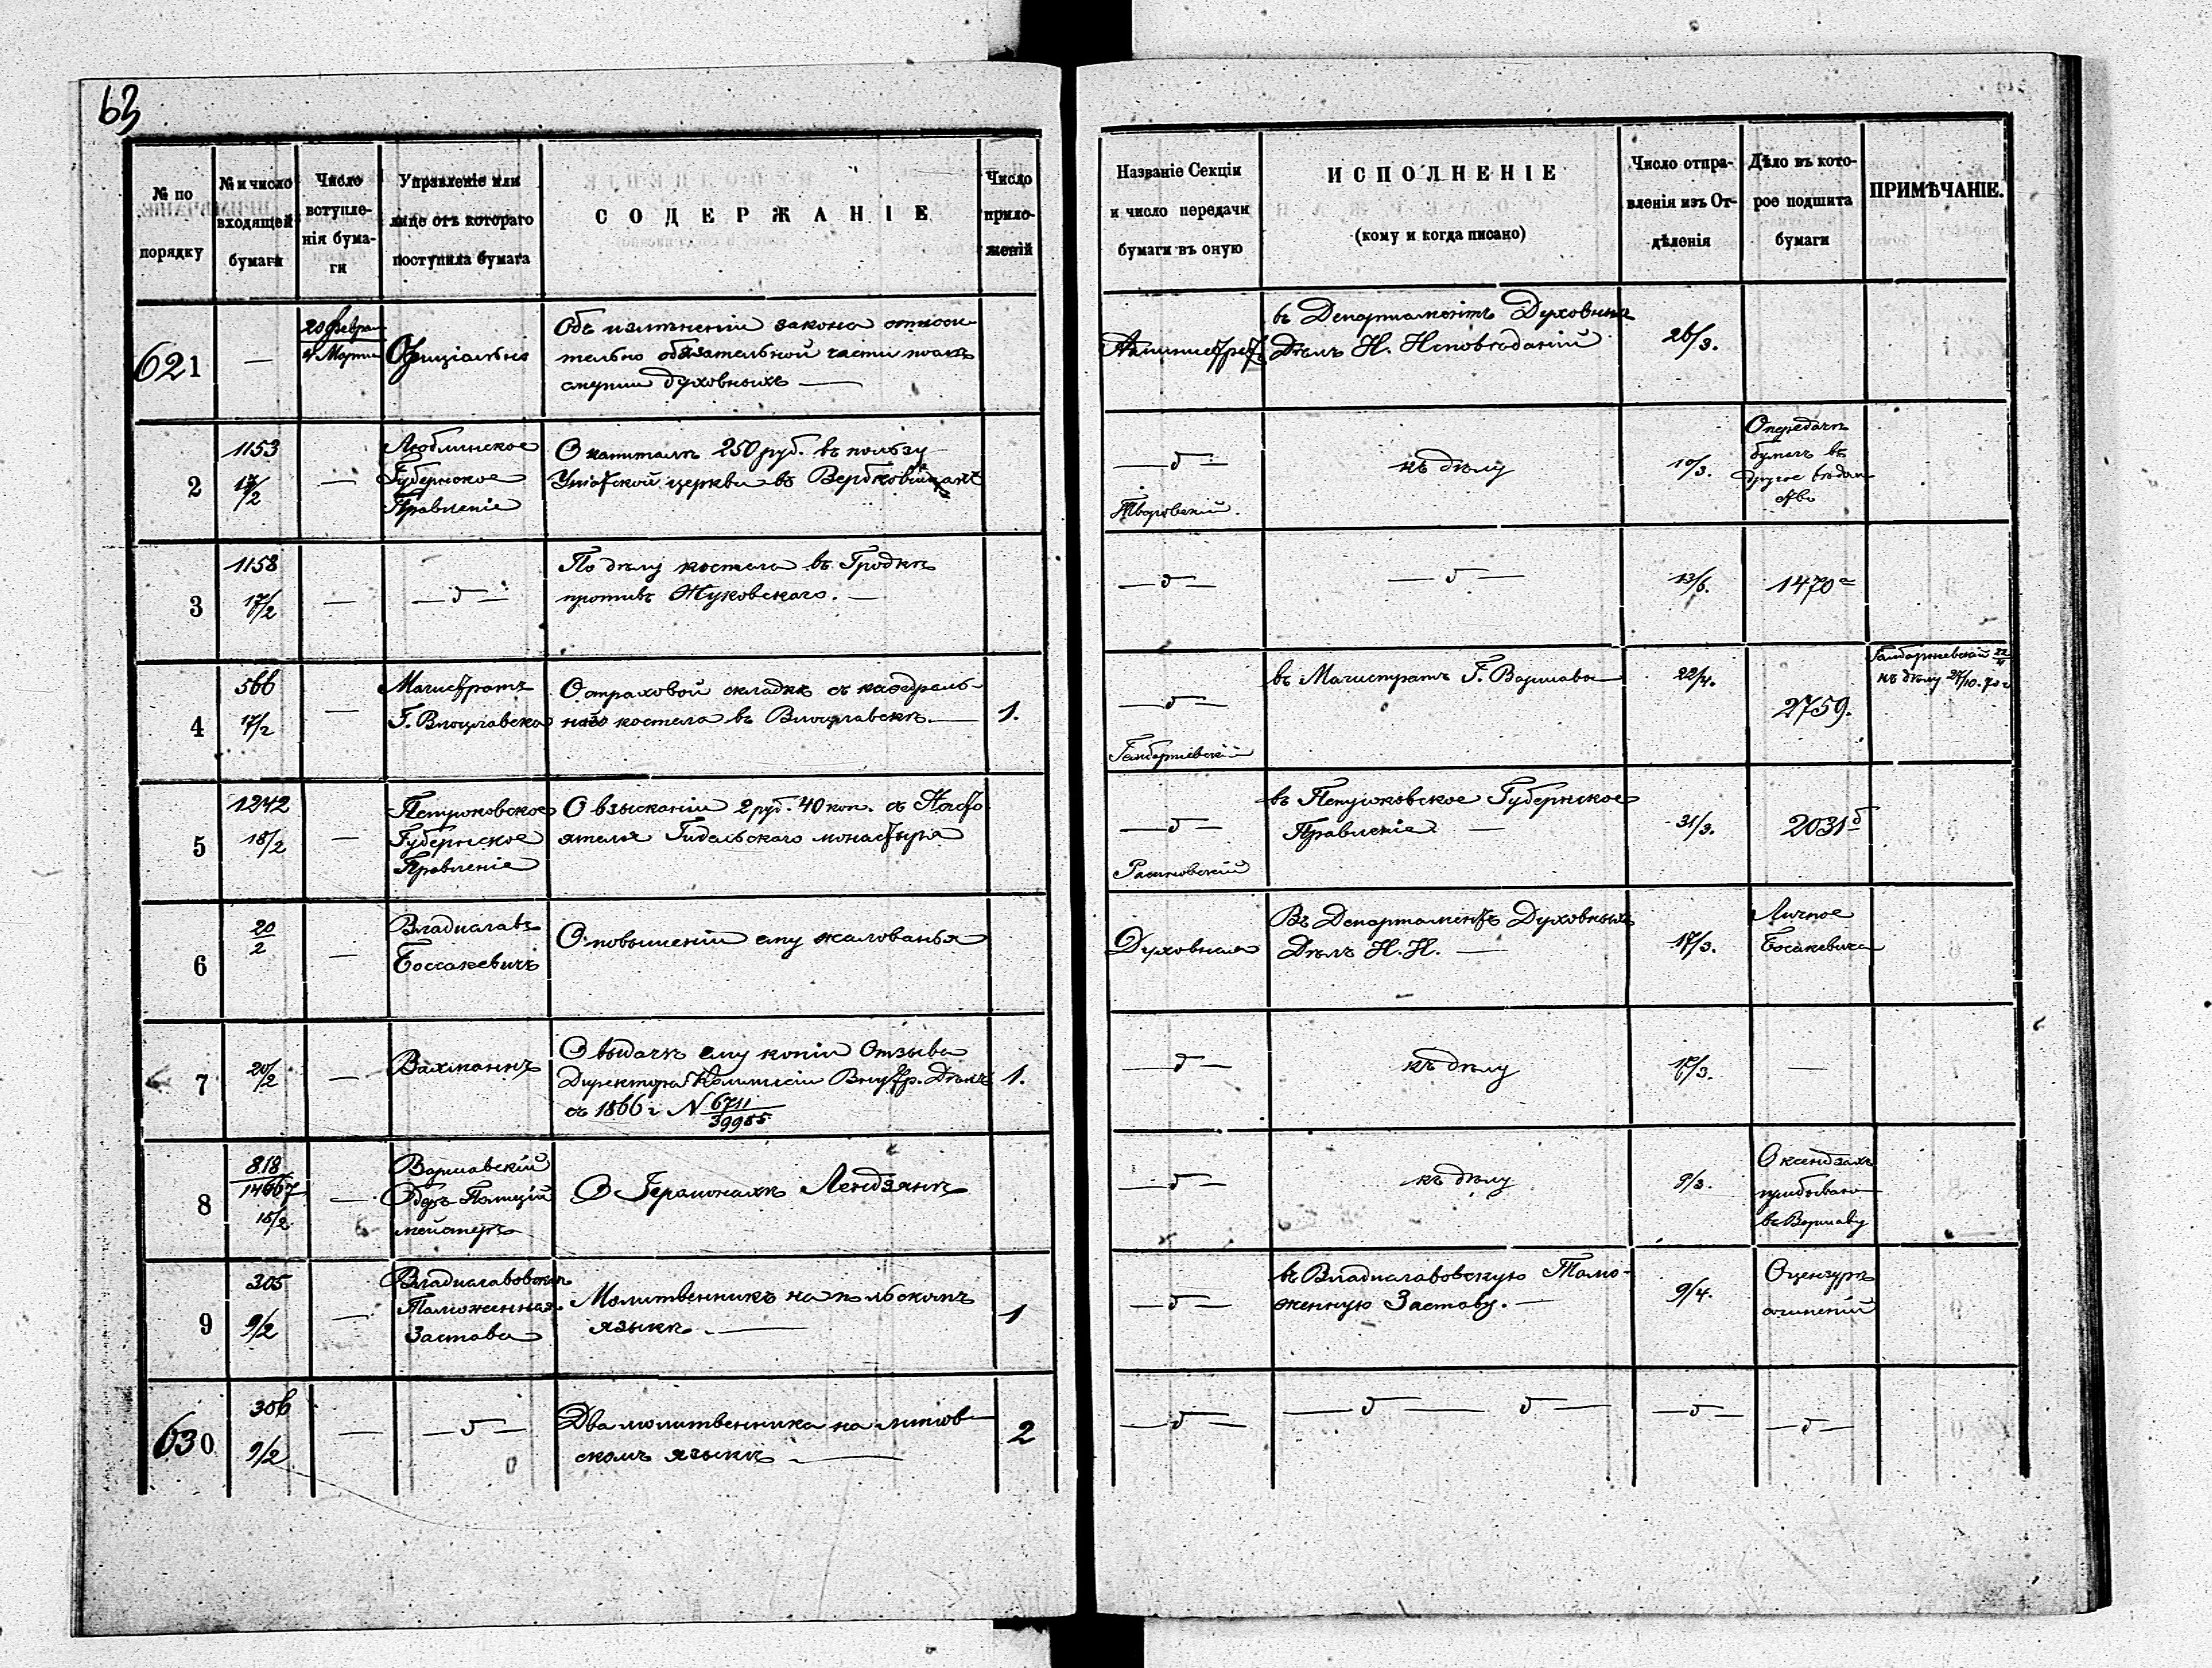 63
№ по
порядку
№ и число
входящей
бумаги
Число
вступле-
нія бума-
ги
Управленіе или
лице отъ котораго
поступила бумага
СОДЕРЖАНІЕ
Число
прило-
женій
Названіе Секціи
и число передачи
бумаги въ оную
ИСПОЛНЕНІЕ
(кому и когда писано)
Число отпра-
вленія изъ От-
дѣленія
Дѣло въ кото-
рое подшита
бумаги
ПРИМѢЧАНІЕ.
621
—
20 Феврал
4 Марта
Офиціально
Объ измѣненіи закона относи-
тельно обязательной части
духовныхъ —
въ Департаментъ Духовныхъ
Дѣлъ И. Исповѣданій
26/3.
2
1153
17/2
—
Люблинское
Губернское
Правленіе
О капиталѣ 250 руб. въ пользу
Уніатской церкви въ Вербковицахъ
— д —
Творовскій.
къ дѣлу
10/3.
О передачѣ
бумагъ въ
другое вѣдом
ство
3
1158
17/2
—
— д —
По дѣлу костела въ Гродкѣ
противъ Жуковскаго. —
— д —
— д —
13/6.
1470
4
566
17/2
—
Магистратъ
Г. Влоцлавска
О страховой складкѣ съ кафедраль-
наго костела въ Влоцлавскѣ. —
1.
— д —
въ Магистратъ Г. Варшавы
22/4.
2759.
къ дѣлу 27/10. 70 г
5
1242
18/2
—
Петроковское
Губернское
Правленіе
О взысканіи 2 руб. 40 коп. съ Насто
ятеля Гидельскаго монастыря
— д —
въ Петроковское Губернское
Правленіе —
31/3.
2031 б
6
20
2
—
Владиславъ
Боссакевичъ
О повышеніи ему жалованья
Духовная
Въ Департаментъ Духовныхъ
Дѣлъ И. И. —
17/3.
Личное
Босакевича
7
20/2
—
Вахманъ
О выдачѣ ему копіи Отзыва
Директора Коммисіи Внутр. Дѣлъ
съ 1866 г N 6711
39955
1.
— д —
къ дѣлу
17/3.
—
8
818
14667
18/2
—
Варшавскій
Оберъ Полицій
мейстеръ
О Іеромонахѣ Лендзянѣ
— д —
къ дѣлу
9/3.
О ксендзахъ
прибываю
въ Варшаву
9
305
9/2
—
Владиславовская
Таможенная
Застава
Молитвенникъ на польскомъ
языкѣ. —
1
— д —
въ Владиславовскую Тамо-
женную Заставу. —
9/4.
О цензурѣ
сочиненій
630
306
9/2
—
— д —
Два молитвенника на литов-
скомъ языкѣ —
2
— д —
— д — д —
— д —
— д —